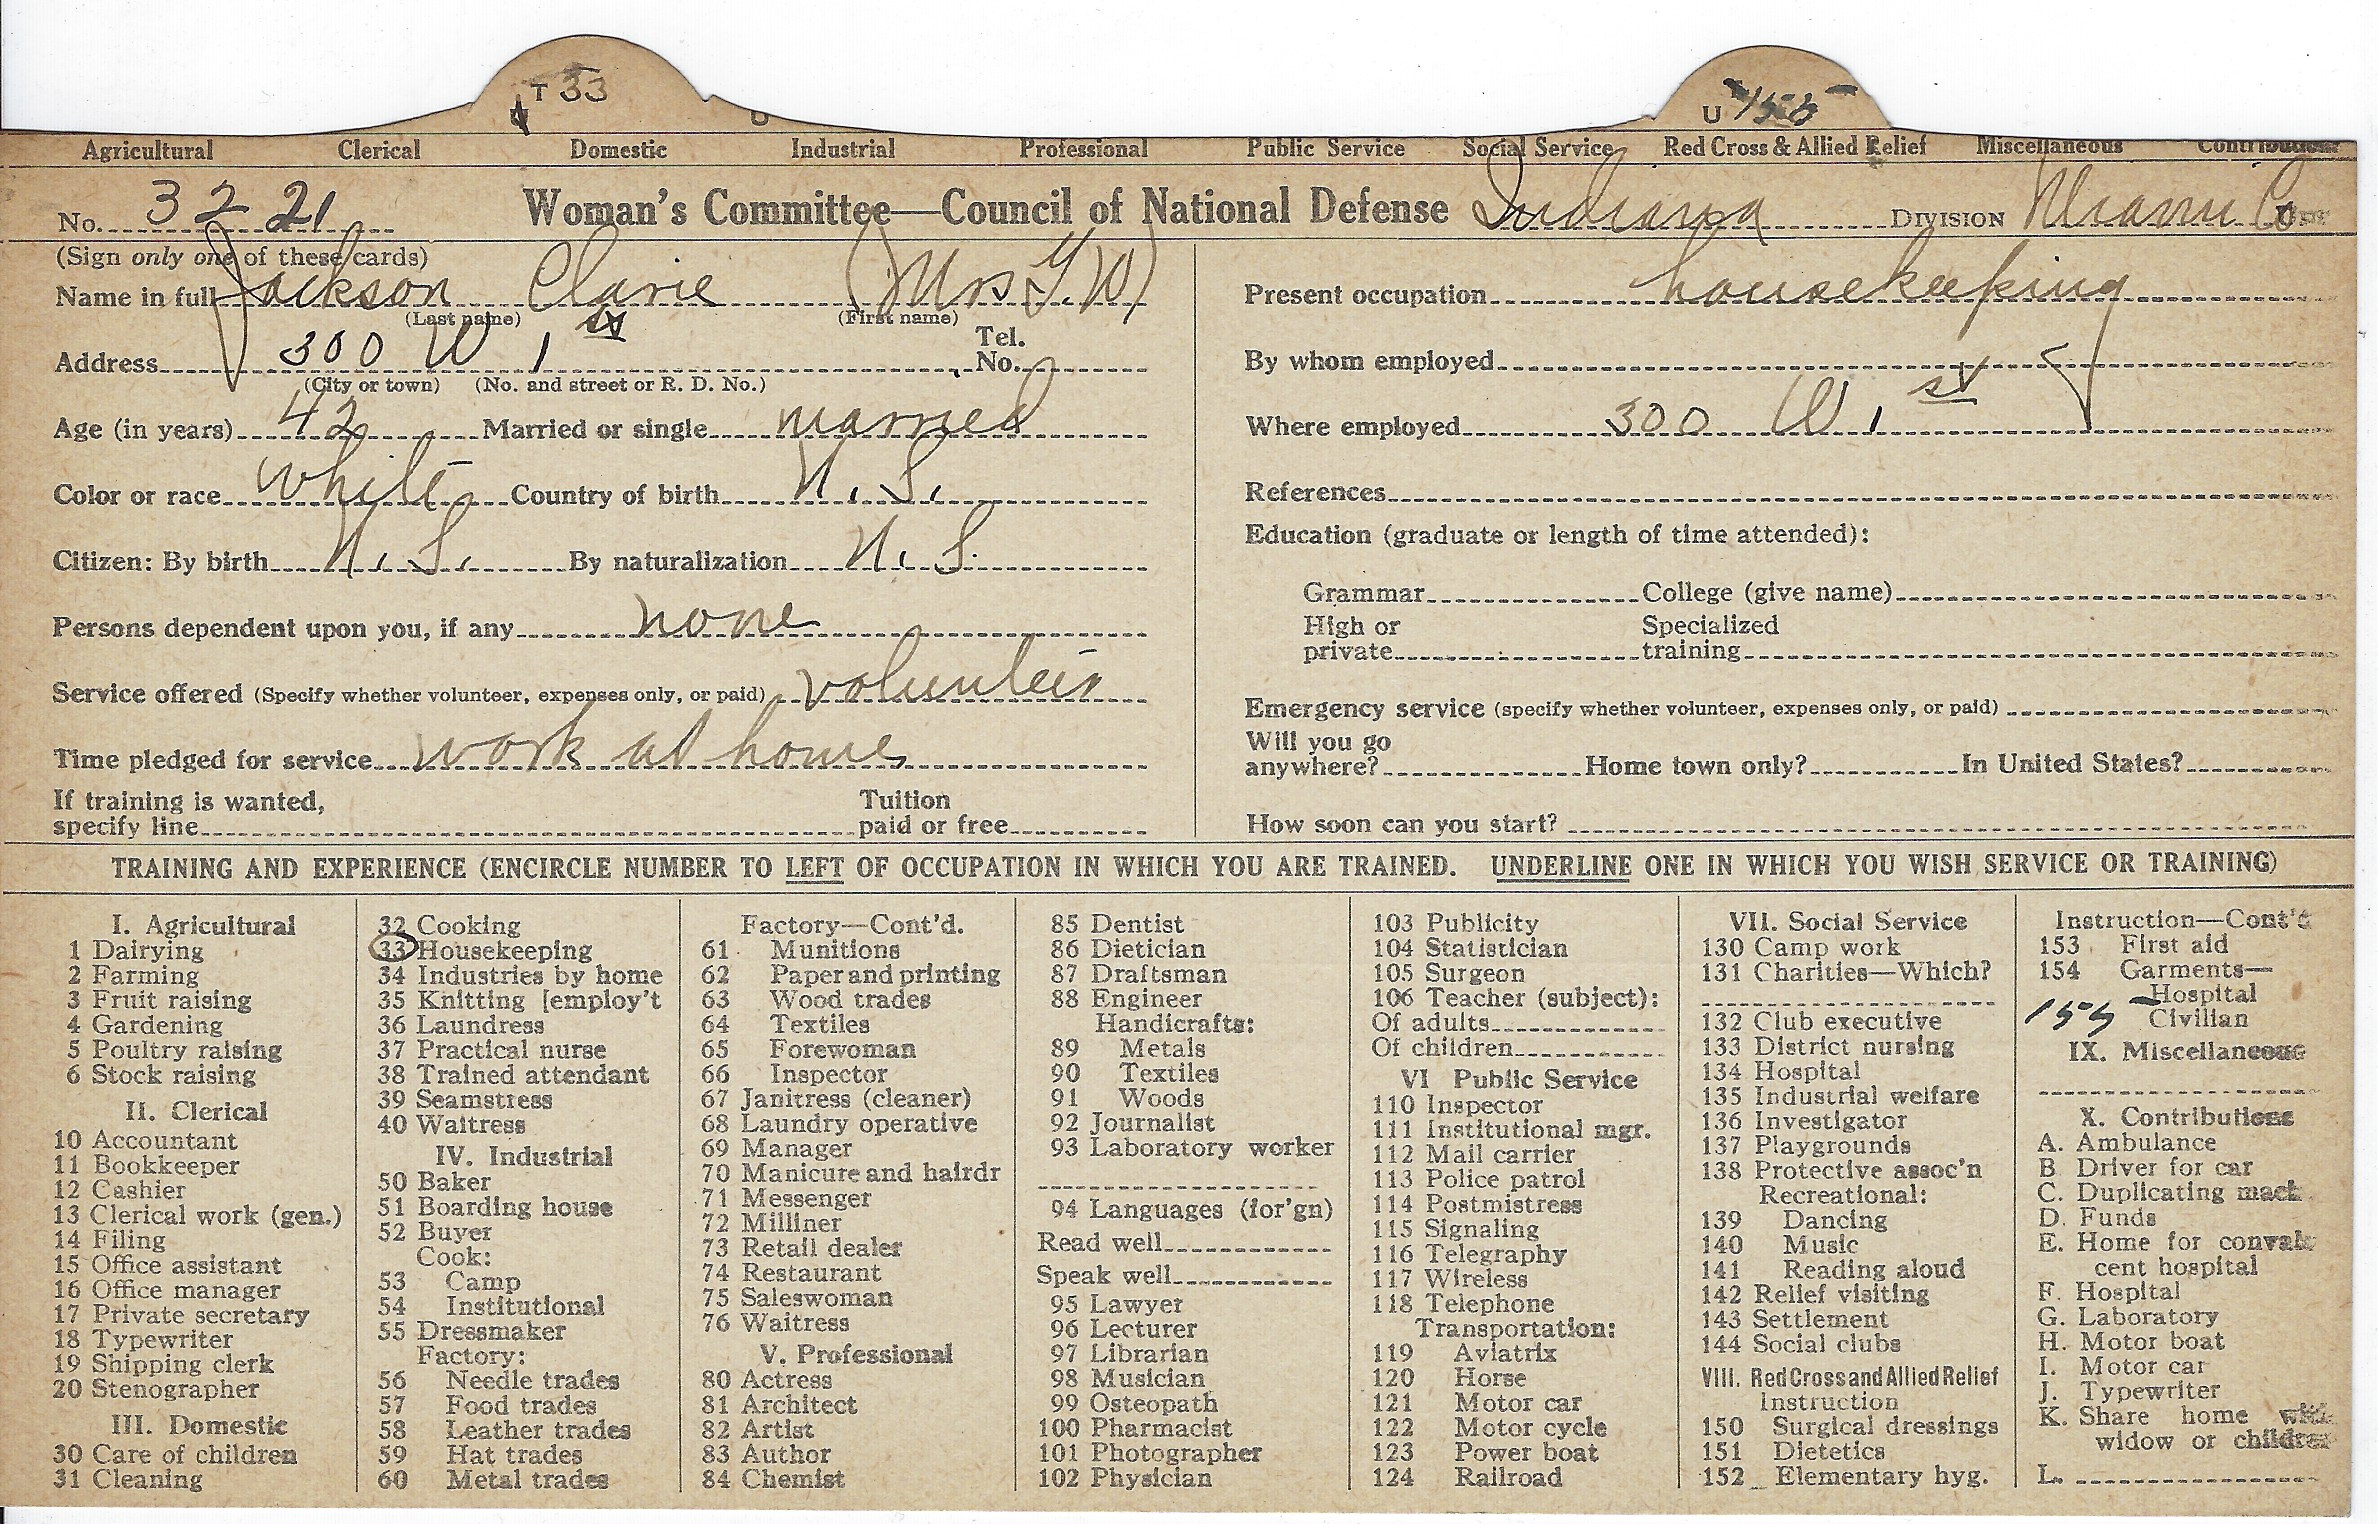 T 33
U 155
Agricultural Clerical Domestic Industrial Professional Public Service Social Service Red Cross & Allied Relief Miscellaneous Contributions
No. 3221 Woman's Committee—Council of National Defense Indiana DIVISION Miami Co
(Sign only one of these cards)
Name in full Jackson Clarie (Mrs G.W)
(Last name) (First name)
Address 300 W 1 st Tel. No.
(City or town) (No. and street or R. D. No.)
Age (in years) 42 Married or single married
Color or race White Country of birth U. S.
Citizen: By birth U. S. By naturalization U. S.
Persons dependent upon you, if any none
Service offered (Specify whether volunteer, expenses only, or paid) volunteer
Time pledged for service work at home
If training is wanted,
specify line Tuition paid or free
Present occupation housekeeping
By whom employed
Where employed 300 W 1 st
References
Education (graduate or length of time attended):
Grammar College (give name)
High or private Specialized training
Emergency service (specify whether volunteer, expenses only, or paid)
Will you go
anywhere? Home town only? In United States?
How soon can you start?
TRAINING AND EXPERIENCE (ENCIRCLE NUMBER TO LEFT OF OCCUPATION IN WHICH YOU ARE TRAINED. UNDERLINE ONE IN WHICH YOU WISH SERVICE OR TRAINING)
I. Agricultural
1 Dairying
2 Farming
3 Fruit raising
4 Gardening
5 Poultry raising
6 Stock raising
II. Clerical
10 Accountant
11 Bookkeeper
12 Cashier
13 Clerical work (gen.)
14 Filing
15 Office assistant
16 Office manager
17 Private secretary
18 Typewriter
19 Shipping clerk
20 Stenographer
III. Domestic
30 Care of children
31 Cleaning
32 Cooking
33 Housekeeping
34 Industries by home
35 Knitting [employ't
36 Laundress
37 Practical nurse
38 Trained attendant
39 Seamstress
40 Waitress
IV. Industrial
50 Baker
51 Boarding house
52 Buyer
Cook:
53 Camp
54 Institutional
55 Dressmaker
Factory:
56 Needle trades
57 Food trades
58 Leather trades
59 Hat trades
60 Metal trades
Factory—Cont'd.
61 Munitions
62 Paper and printing
63 Wood trades
64 Textiles
65 Forewoman
66 Inspector
67 Janitress (cleaner)
68 Laundry operative
69 Manager
70 Manicure and hairdr
71 Messenger
72 Milliner
73 Retail dealer
74 Restaurant
75 Saleswoman
76 Waitress
V. Professional
80 Actress
81 Architect
82 Artist
83 Author
84 Chemist
85 Dentist
86 Dietician
87 Draftsman
88 Engineer
Handicrafts:
89 Metals
90 Textiles
91 Woods
92 Journalist
93 Laboratory worker
94 Languages (for'gn)
Read well
Speak well
95 Lawyer
96 Lecturer
97 Librarian
98 Musician
99 Osteopath
100 Pharmacist
101 Photographer
102 Physician
103 Publicity
104 Statistician
105 Surgeon
106 Teacher (subject):
Of adults
Of children
VI Public Service
110 Inspector
111 Institutional mgr.
112 Mail carrier
113 Police patrol
114 Postmistress
115 Signaling
116 Telegraphy
117 Wireless
118 Telephone
Transportation:
119 Aviatrix
120 Horse
121 Motor car
122 Motor cycle
123 Power boat
124 Railroad
VII. Social Service
130 Camp work
131 Charities—Which?
132 Club executive
133 District nursing
134 Hospital
135 Industrial welfare
136 Investigator
137 Playgrounds
138 Protective assoc'n
Recreational:
139 Dancing
140 Music
141 Reading aloud
142 Relief visiting
143 Settlement
144 Social clubs
VIII. Red Cross and Allied Relief
Instruction
150 Surgical dressings
151 Dietetics
152 Elementary hyg.
Instruction—Cont'd
153 First aid
154 Garments—
Hospital
155 Civilian
IX. Miscellaneous
X. Contributions
A. Ambulance
B Driver for car
C. Duplicating mach
D. Funds
E. Home for convales
cent hospital
F. Hospital
G. Laboratory
H. Motor boat
I. Motor car
J. Typewriter
K. Share home with
widow or children
L.